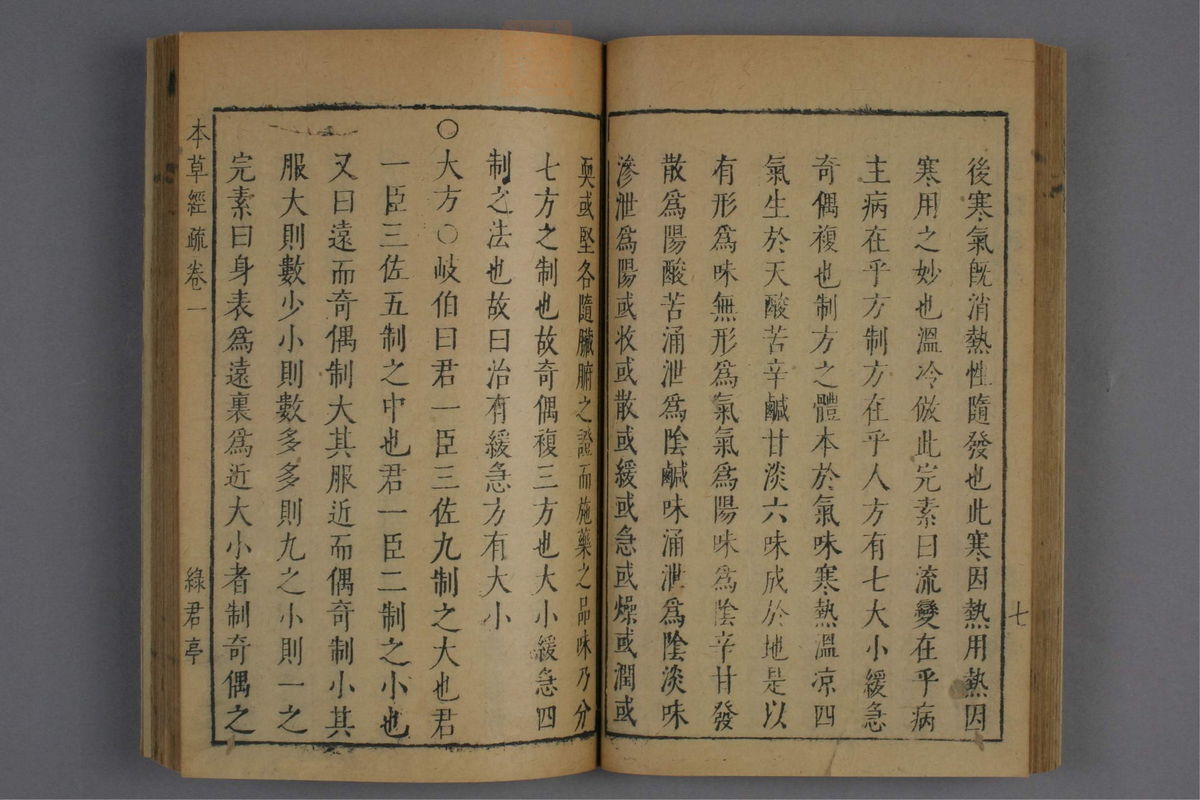 後寒氣旣消熱性隨發也此寒因熱用熱因
寒用之妙也溫冷倣此完素曰流變在乎病
主病在乎方制方在乎人方有七大小緩急
奇偶複也制方之體本於氣味寒熱溫凉四
氣生於天酸苦辛鹹甘淡六味成於地是以
有形爲味無形爲氣氣爲陽味爲陰辛甘發
散爲陽酸苦涌泄爲陰鹹味涌泄爲陰淡味
滲泄爲陽或收或散或緩或急或燥或潤或
耎或堅各隨臟腑之證而施藥之品味乃分
七方之制也故奇偶複三方也大小緩急四
制之法也故曰治有緩急方有大小
○大方○岐伯曰君一臣三佐九制之大也君
一臣三佐五制之中也君一臣二制之小也
又曰遠而奇偶制大其服近而偶奇制小其
服大則數少小則數多多則九之小則一之
完素曰身表爲遠裏爲近大小者制奇偶之
七
本草經疏卷一
綠君亭